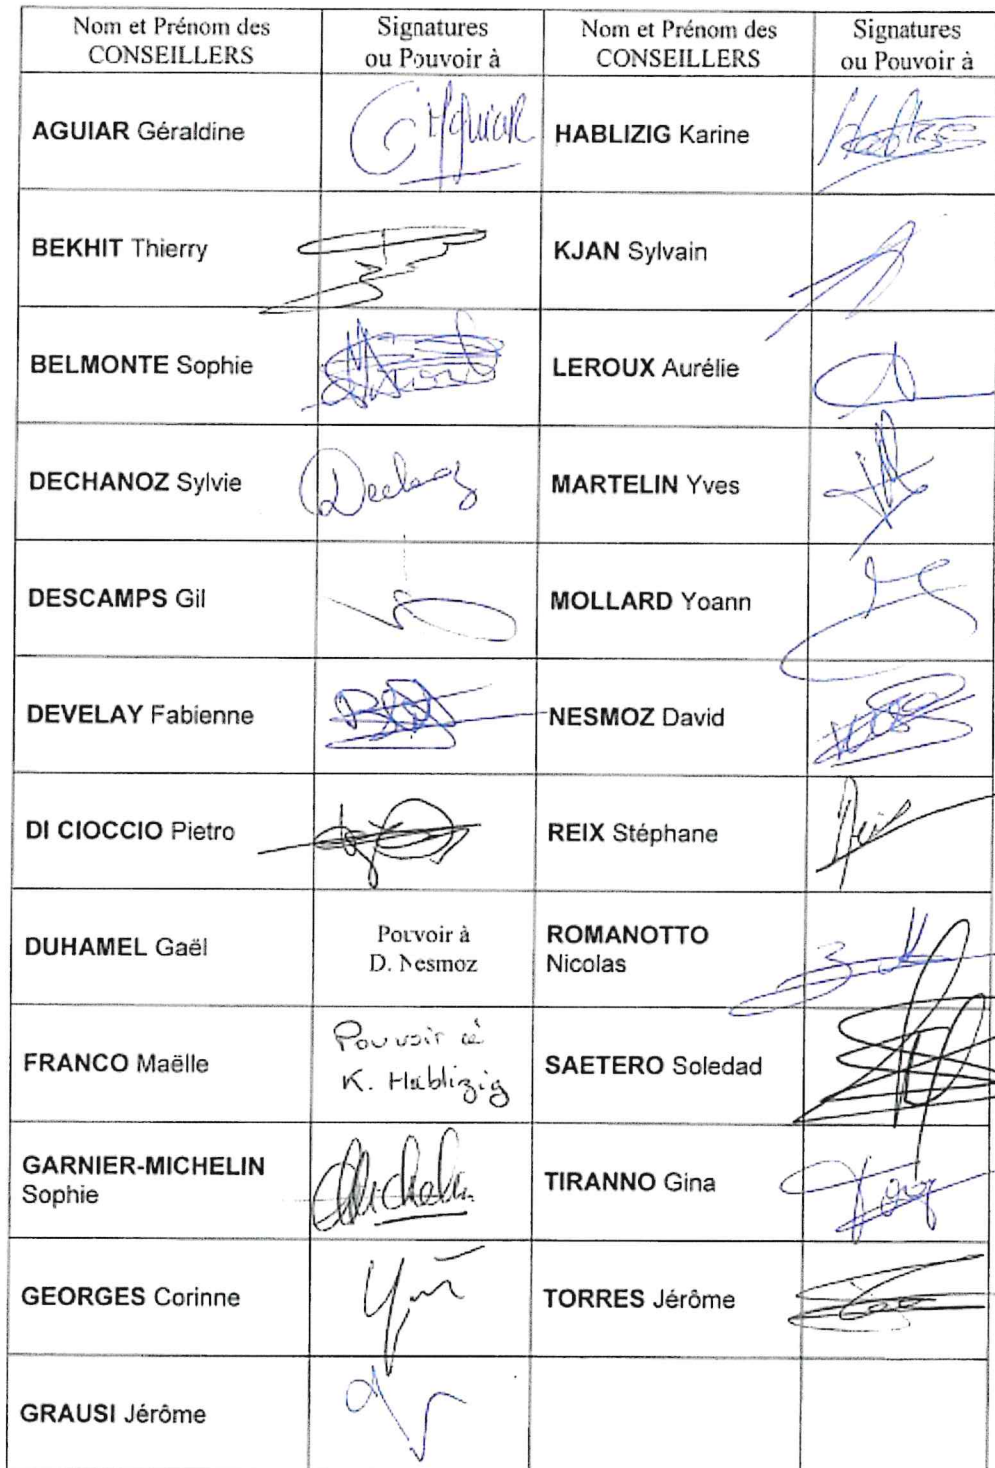 Nom et Prénom des
CONSEILLERS
Signatures
ou Pouvoir à
Nom et Prénom des
CONSEILLERS
Signatures
ou Pouvoir à
AGUIAR Géraldine
HABLIZIG Karine
BEKHIT Thierry
KJAN Sylvain
BELMONTE Sophie
LEROUX Aurélie
DECHANOZ Sylvie
MARTELIN Yves
DESCAMPS Gil
MOLLARD Yoann
DEVELAY Fabienne
NESMOZ David
DI CIOCCIO Pietro
REIX Stéphane
DUHAMEL Gaël
Pouvoir à
D. Nesmoz
ROMANOTTO
Nicolas
FRANCO Maëlle
Pouvoir à
K. Hablizig
SAETERO Soledad
GARNIER-MICHELIN
Sophie
TIRANNO Gina
GEORGES Corinne
TORRES Jérôme
GRAUSI Jérôme